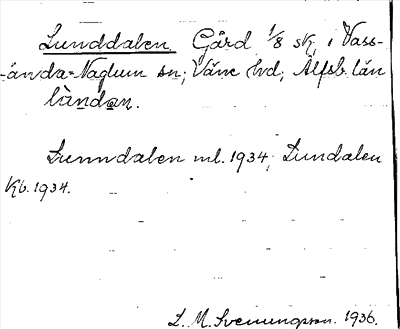 Lunddalen Gård 1/8 sk, i Vass-
ända-Naglum sn; Väne hd; Älfsb. län
lùndan.
Lunndalen ml. 1934; Lundalen
Kb. 1934.
L. M. Svenungsson. 1936.